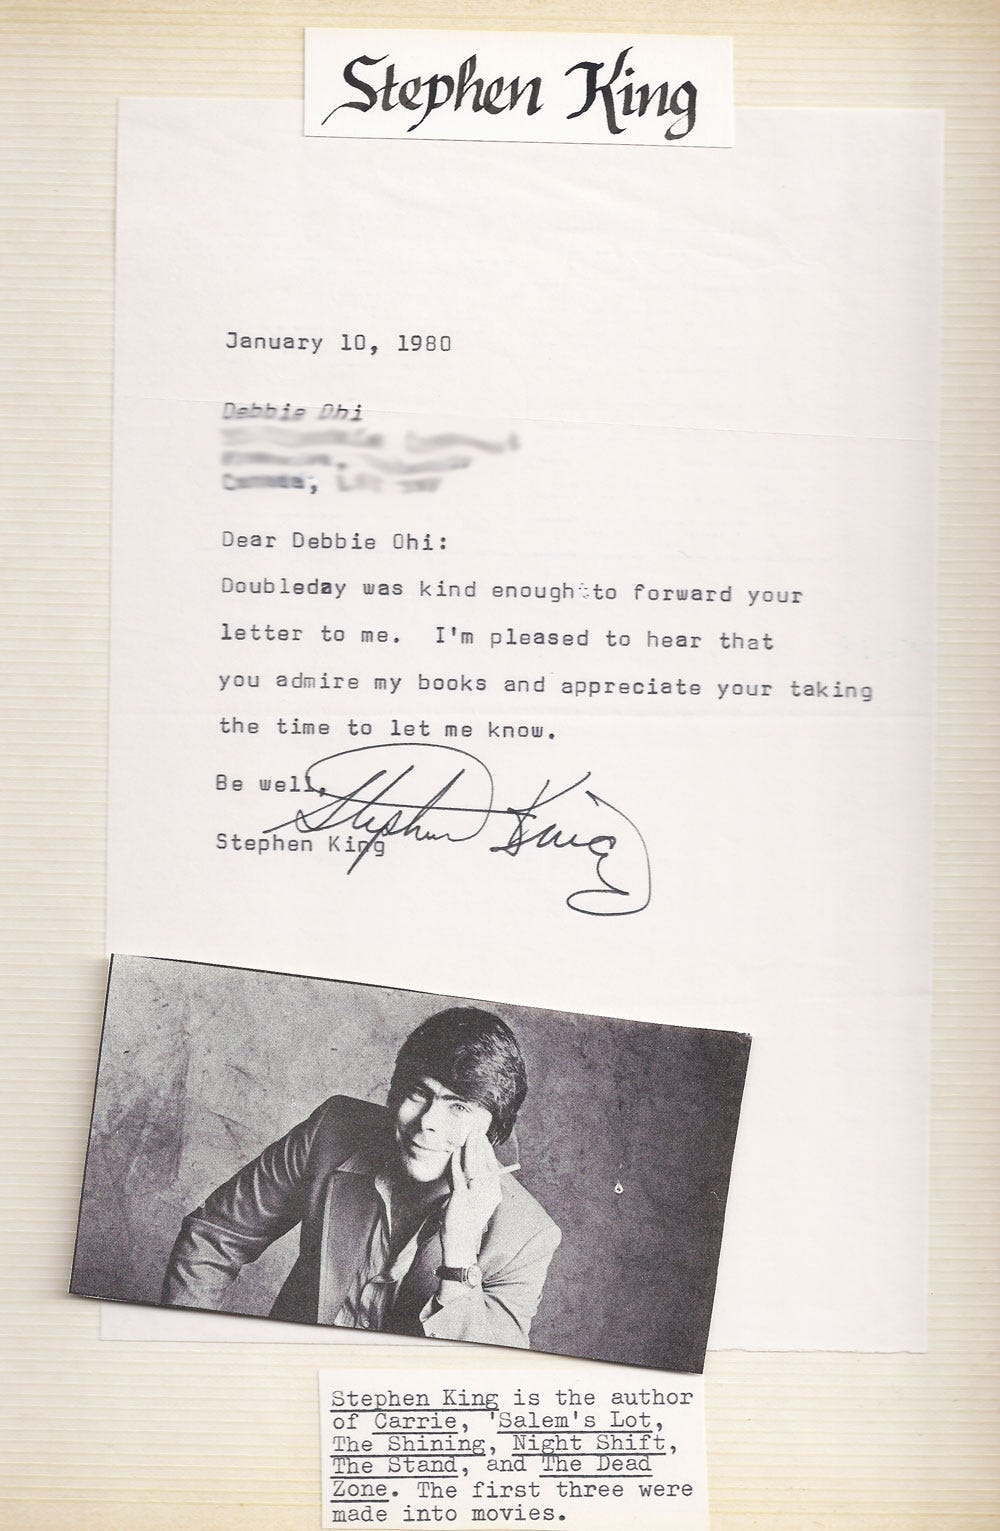 Stephen King
January 10, 1980
Debbie Ohi
Canada,
Dear Debbie Ohi:
Doubleday was kind enough to forward your
letter to me. I'm pleased to hear that
you admire my books and appreciate your taking
the time to let me know.
Be well,
Stephen King
Stephen King
Stephen King is the author
of Carrie, 'Salem's Lot,
The Shining, Night Shift,
The Stand, and The Dead
Zone. The first three were
made into movies.